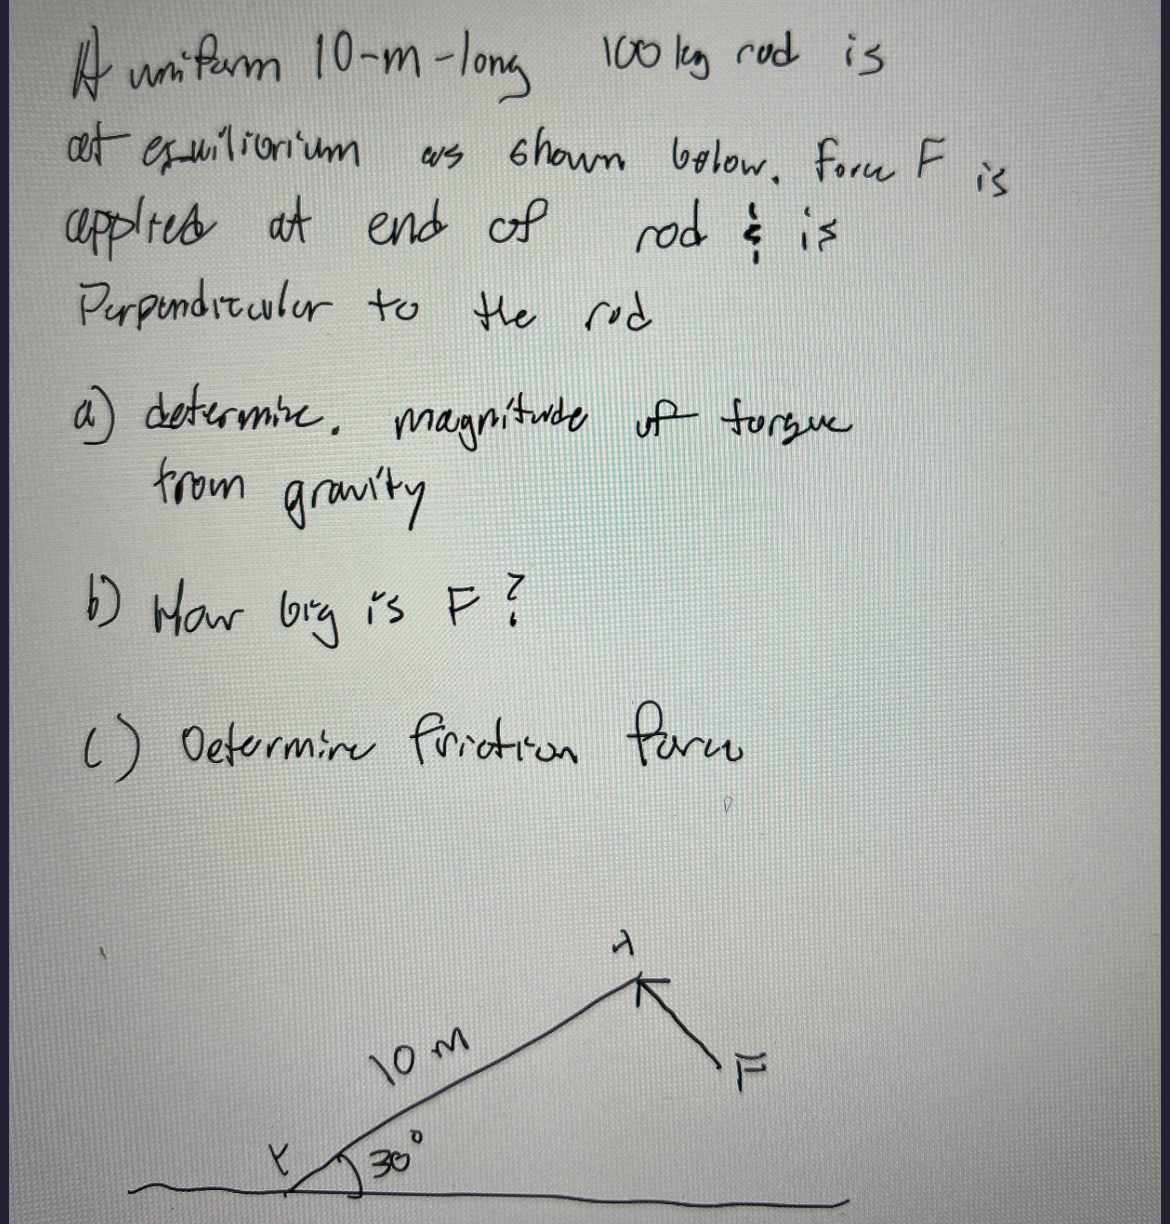 A uniform 10-m-long 100 kg rod is
at equilibrium as shown below. Force F is
applied at end of rod & is
Perpendicular to the rod
a) determine. magnitude of torque
from gravity
b) How big is F?
c) Determine friction force
10 M
F
30°